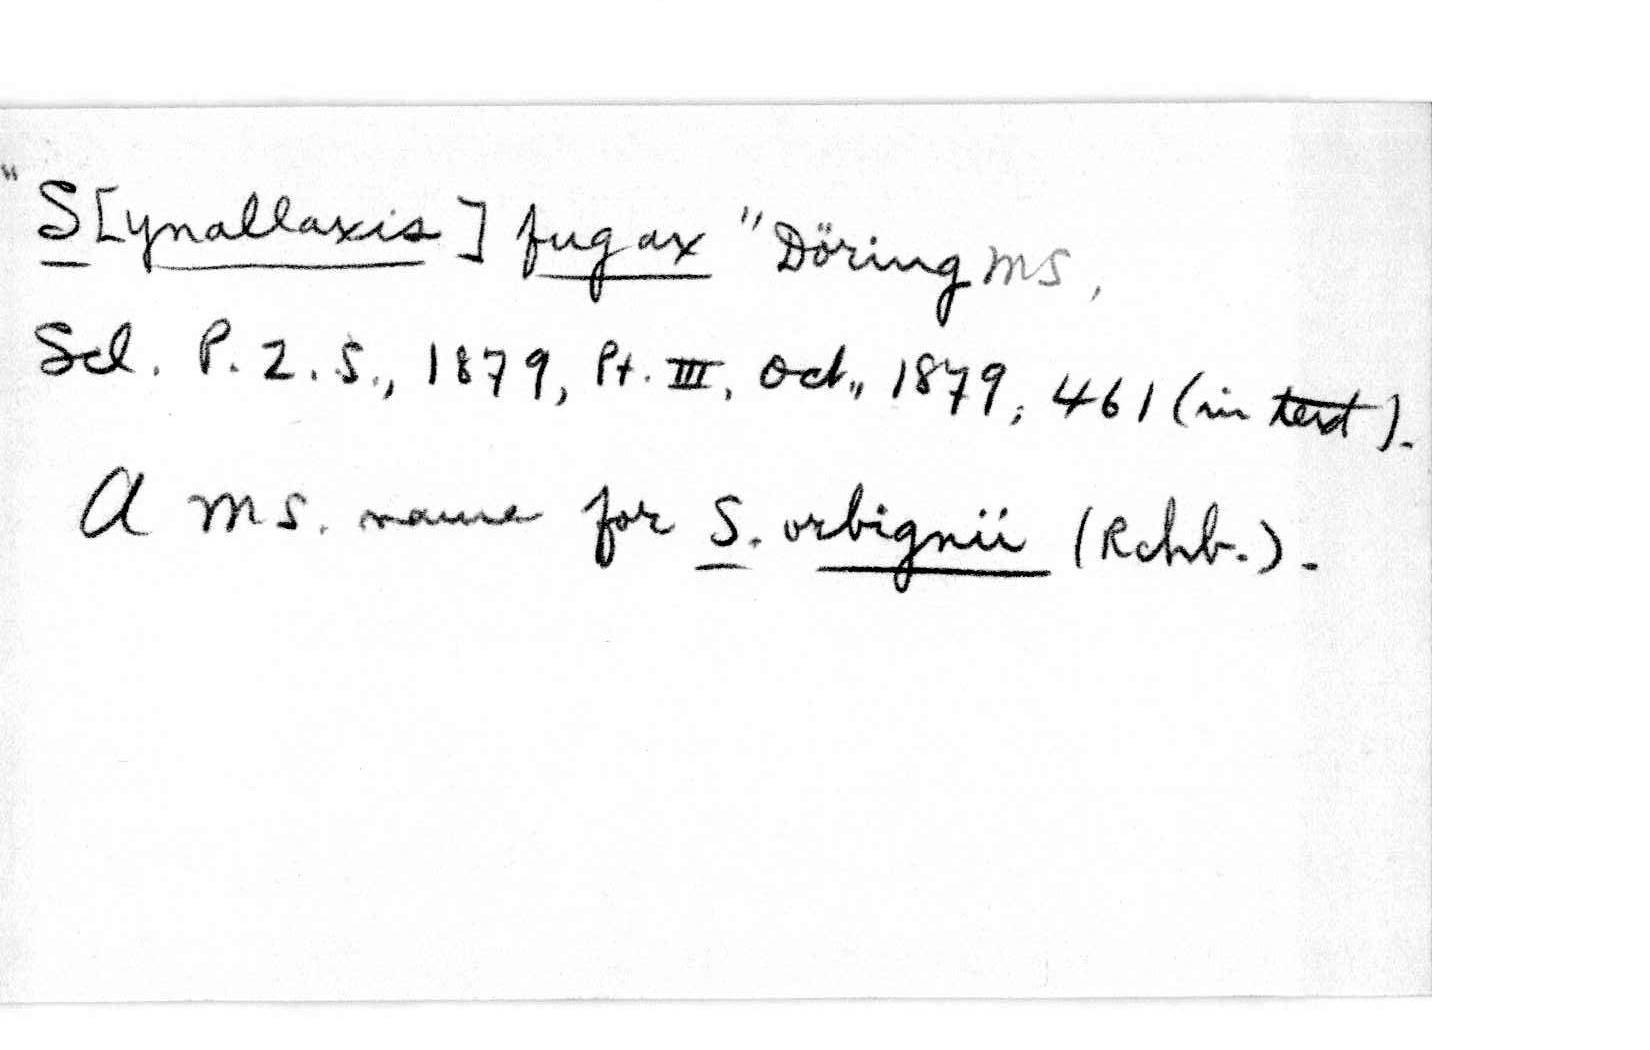 "S[ynallaxis] fugax" Döring MS,
Scl. P. Z. S., 1879, Pt. III, Oct., 1879, 461 (in text).
A MS. name for S. orbignii (Rchb.).